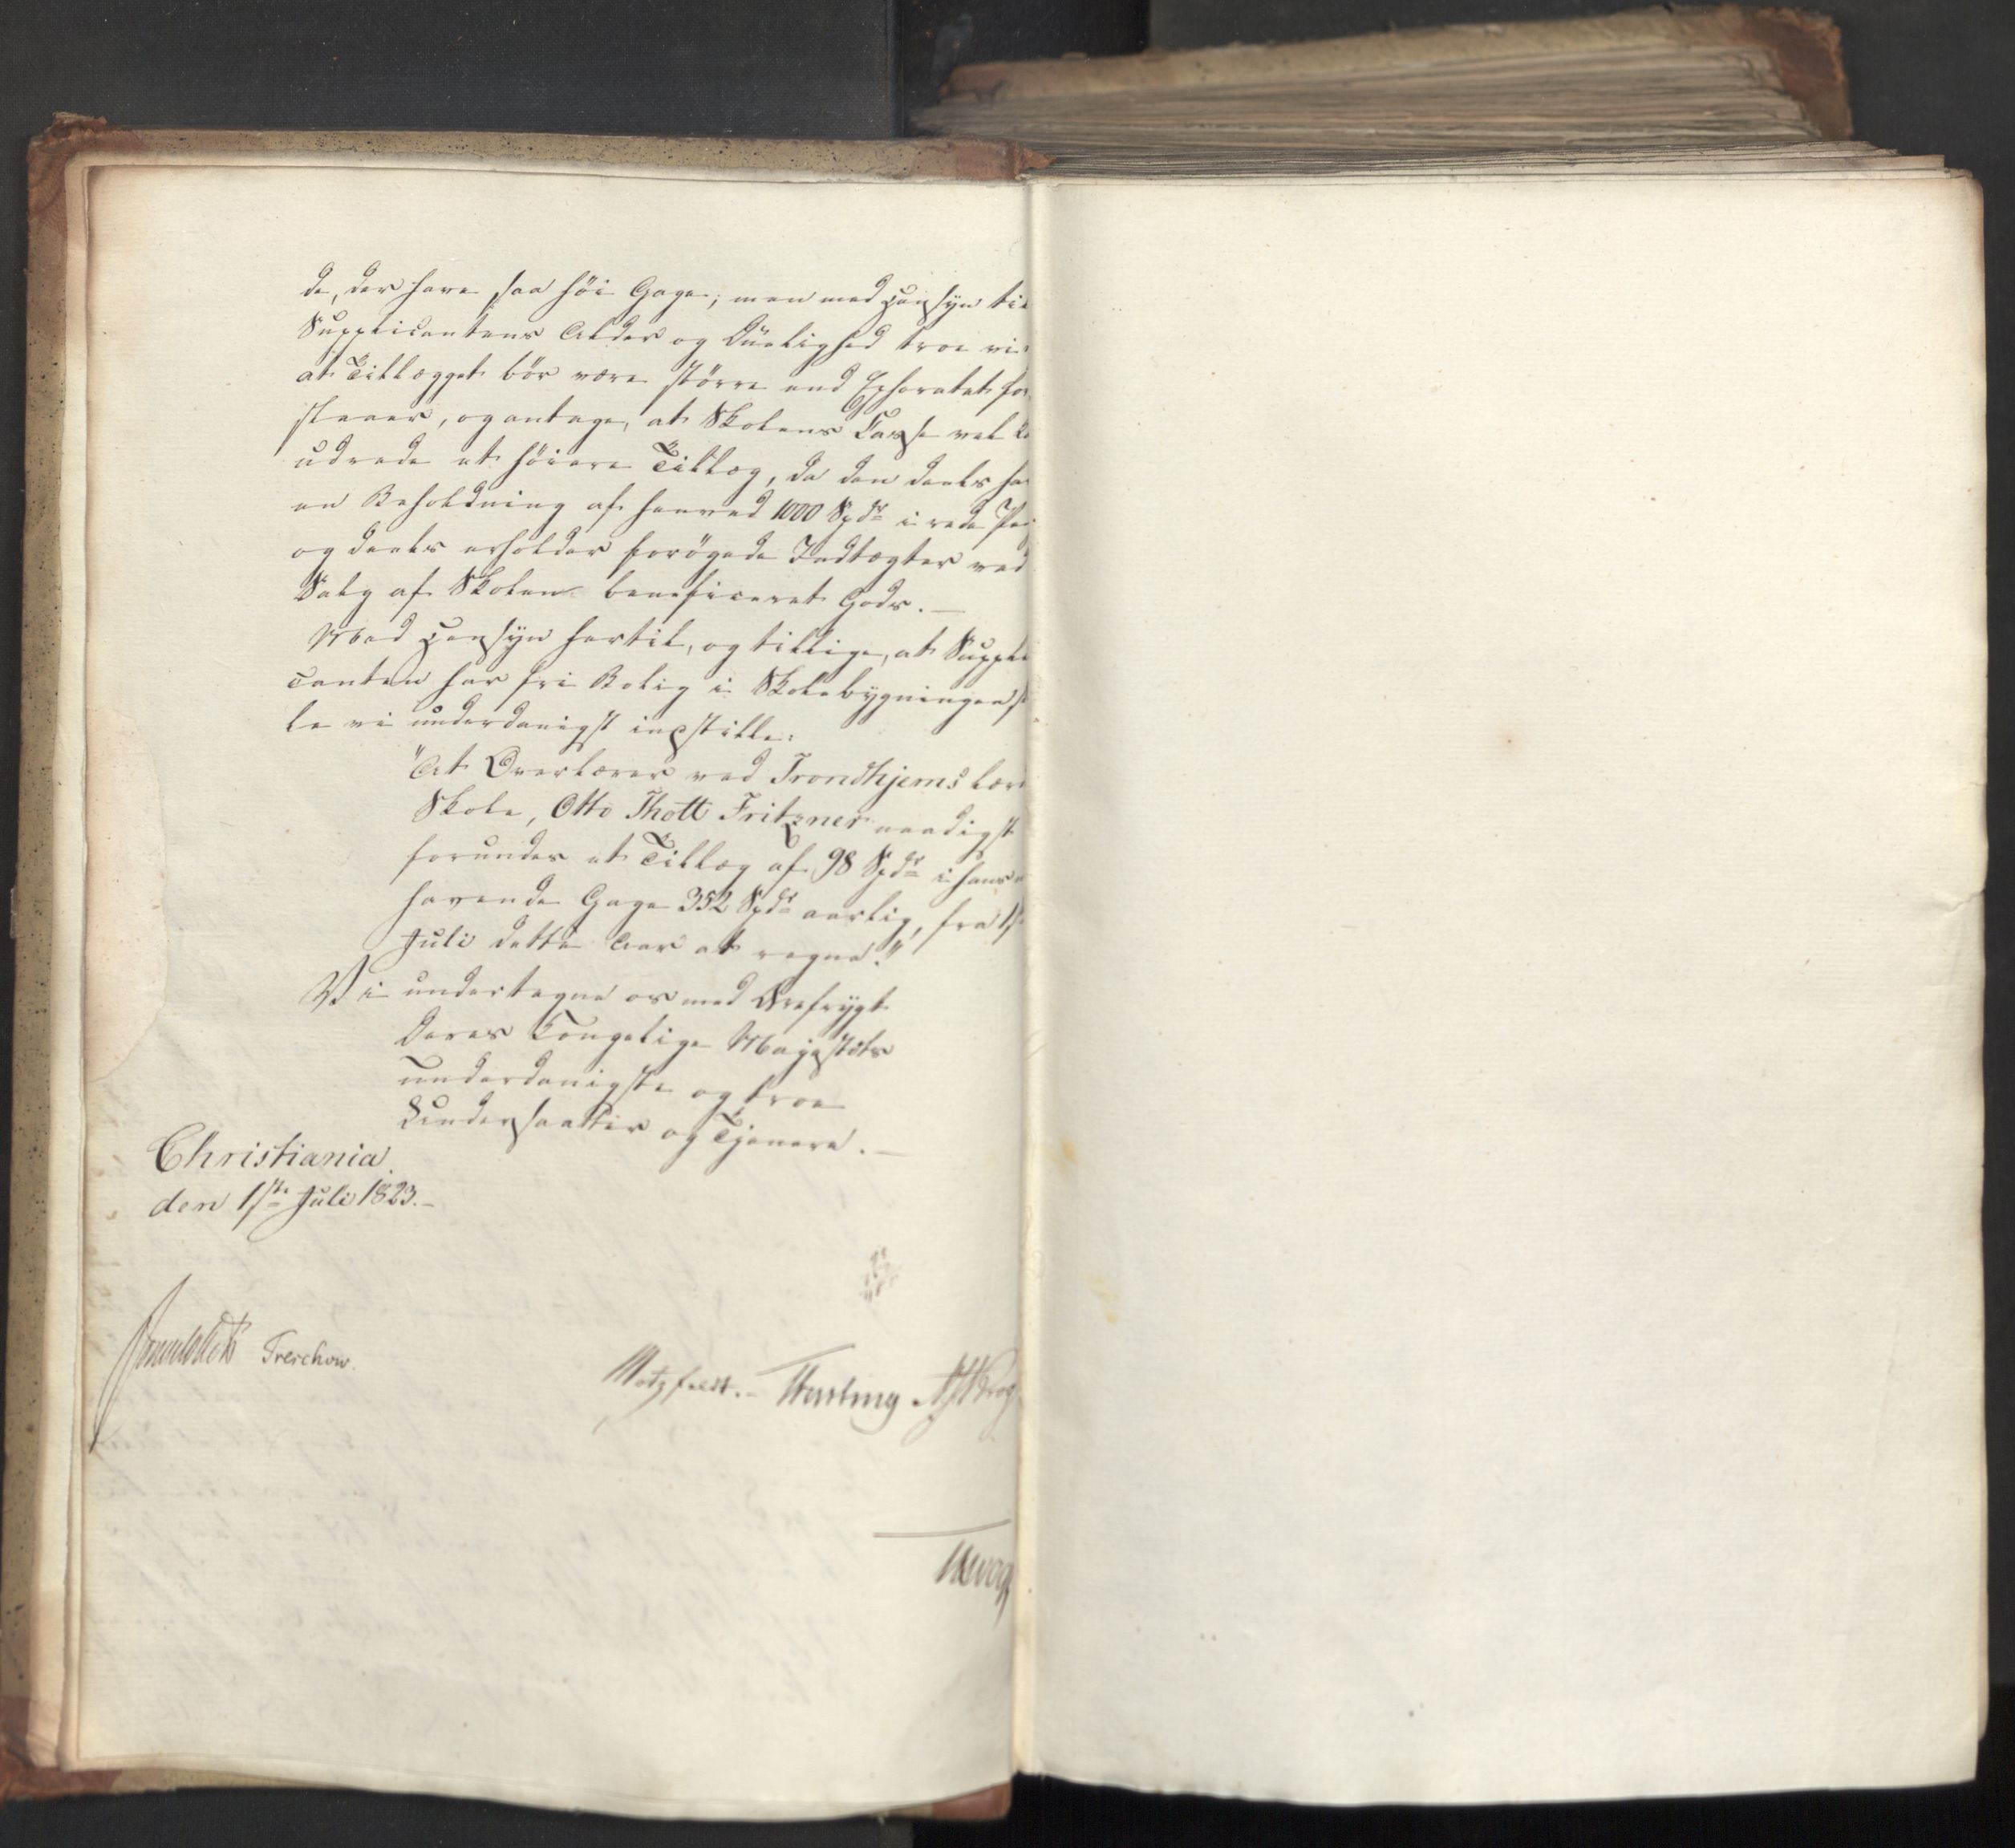 de, der have saa høi Gage; men med Hensyn til
Supplicantens Alder og Duelighed troe vi
at Tillægget bør være større end Ephoratet for
staaer, og antage, at Skolens Casse vel
udrede et høiere Tillæg, da den deels ha
en Beholdning af henved 1000 Spdr i rede Pe
og deels erholder forøgede Indtægter ved
Salg af Skolen beneficeret Gods.—
Med Hensyn hertil, og tillige, at Suppli
canten har fri Bolig i Skolebygningen s
le vi underdanigst indstille:
"At Overlærer ved Trondhjems lær
Skole, Otto Thott Fritzner naadigst
forundes et Tillæg af 98 Spdr i hans
havende Gage 352 Spdr aarlig, fra 1ste
Juli dette Aar at regne."
Vi undertegne os med Ærefrygt
Deres Kongelige Majestæts
underdanigste og troe
Undersaatter og Tjenere.—
Christiania
den 1ste Juli 1823.-
Treschow.
Motzfeldt.-